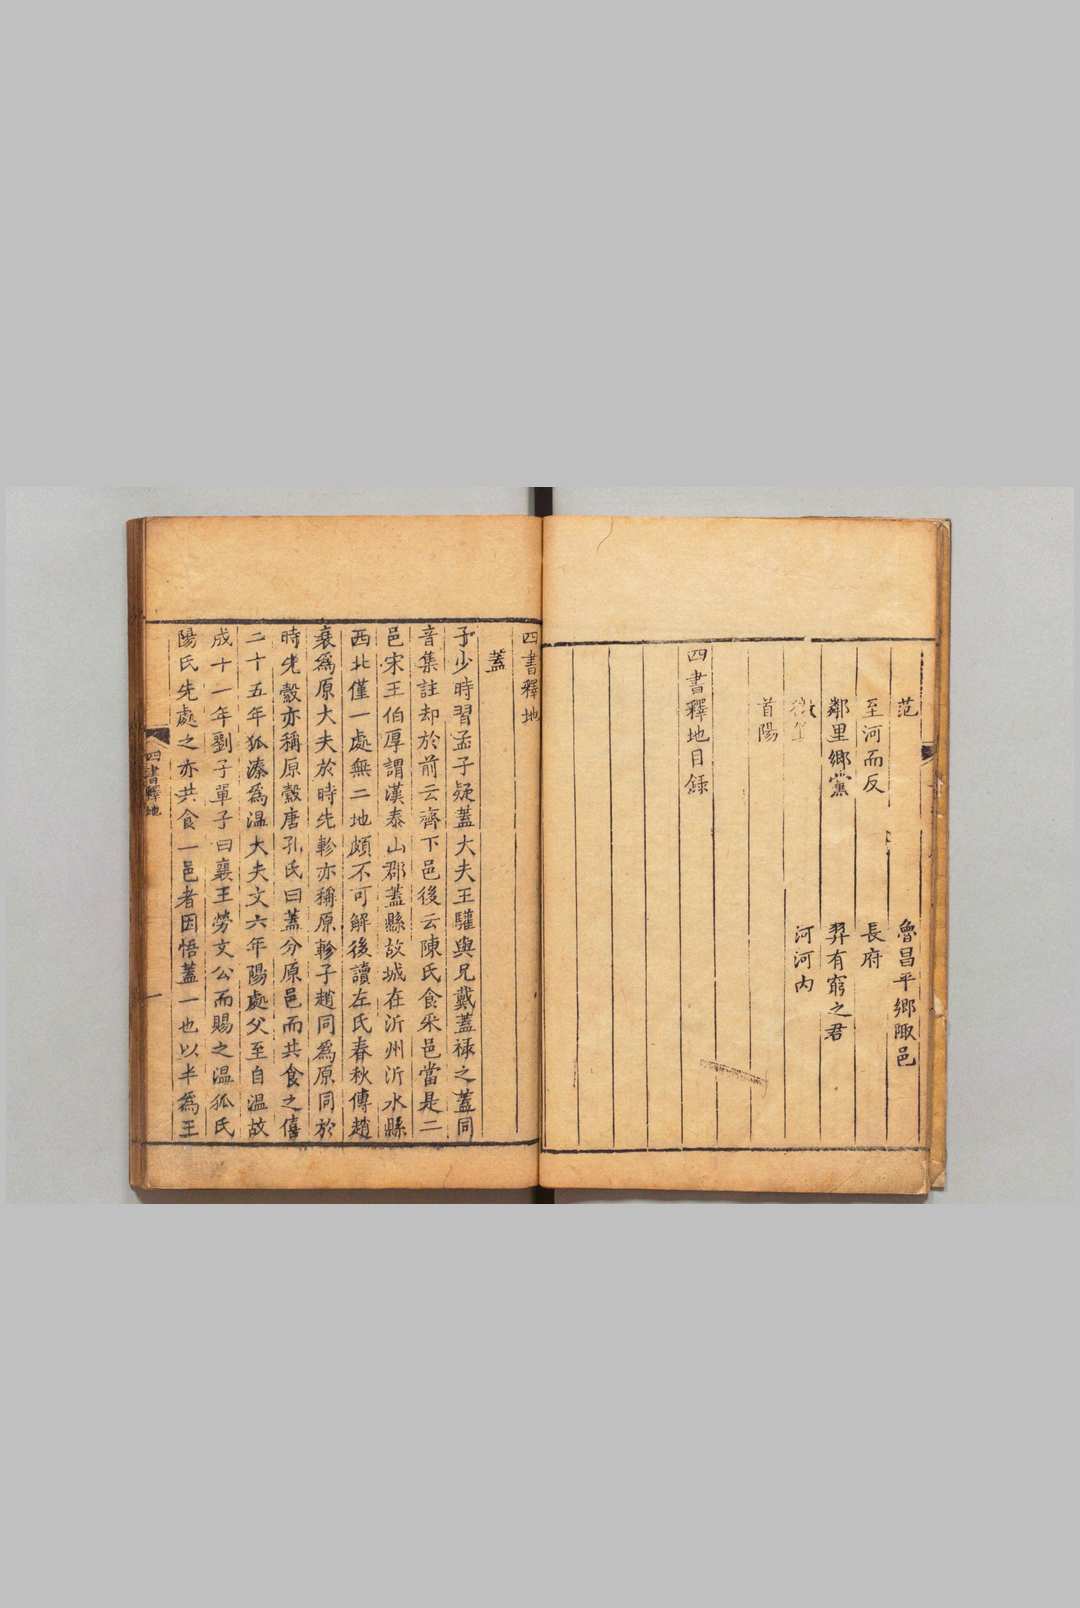 范 魯昌平鄉陬邑
至河而反 長府
鄰里鄉黨 羿有窮之君
微生 河河內
首陽
四書釋地目録
四書釋地
蓋
予少時習孟子疑蓋大夫王驩與兄戴蓋祿之蓋同
音集註却於前云齊下邑後云陳氏食采邑當是二
邑宋王伯厚謂漢泰山郡蓋縣故城在沂州沂水縣
西北僅一處無二地頗不可解後讀左氏春秋傳趙
衰為原大夫於時先軫亦稱原軫子趙同為原同於
時先縠亦稱原縠唐孔氏曰蓋分原邑而共食之僖
二十五年狐溱為溫大夫文六年陽處父至自溫故
成十一年劉子單子曰襄王勞文公而賜之溫狐氏
陽氏先處之亦共食一邑者因悟蓋一也以半為王
四書釋地
一